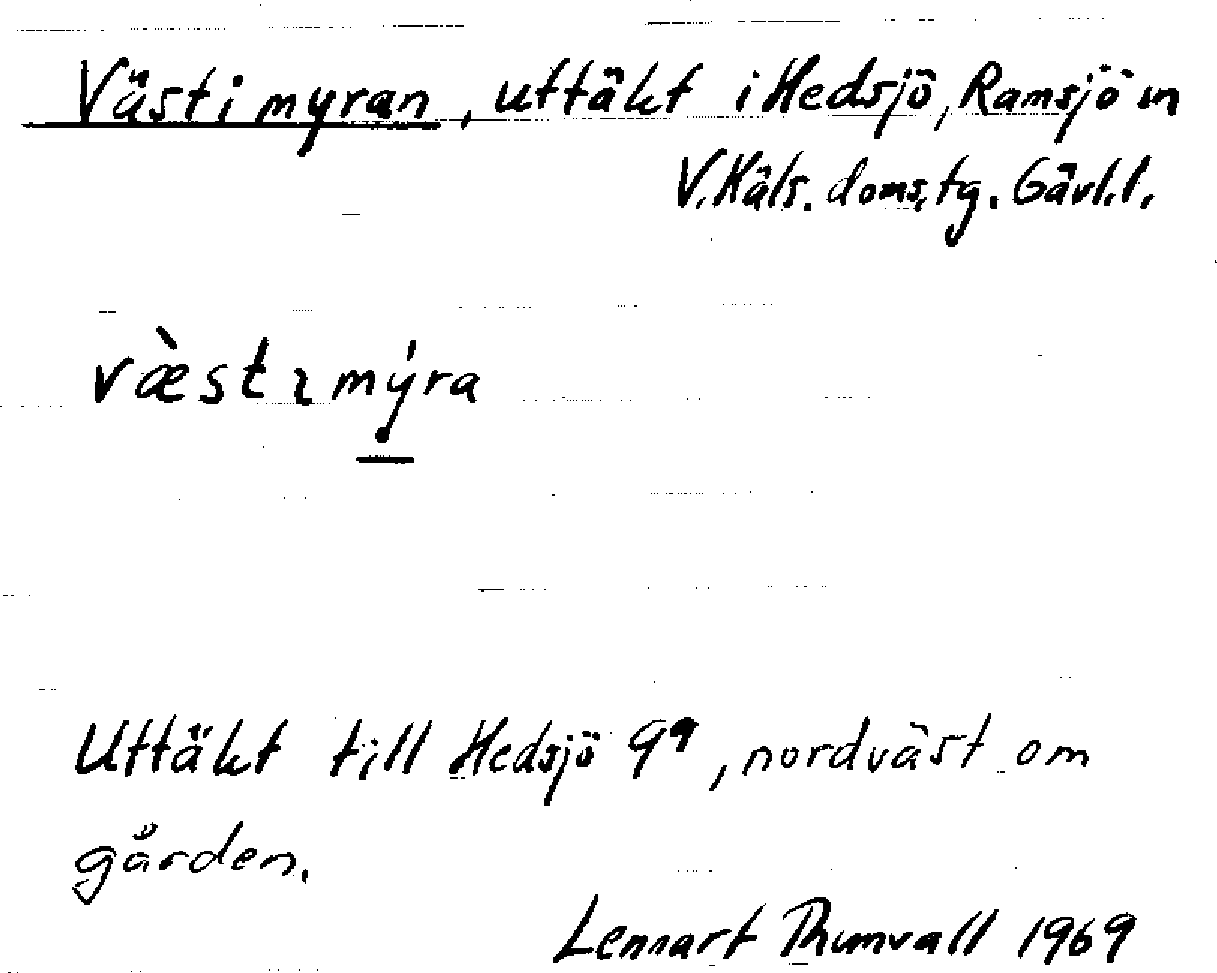 Västimyran, uttäkt i Hedsjö, Ramsjö sn
V. Häls. doms. tg. Gävl.l.
v̀æstɩmýra
Uttäkt till Hedsjö 9⁹, nordväst om
gården.
Lennart Thunvall 1969